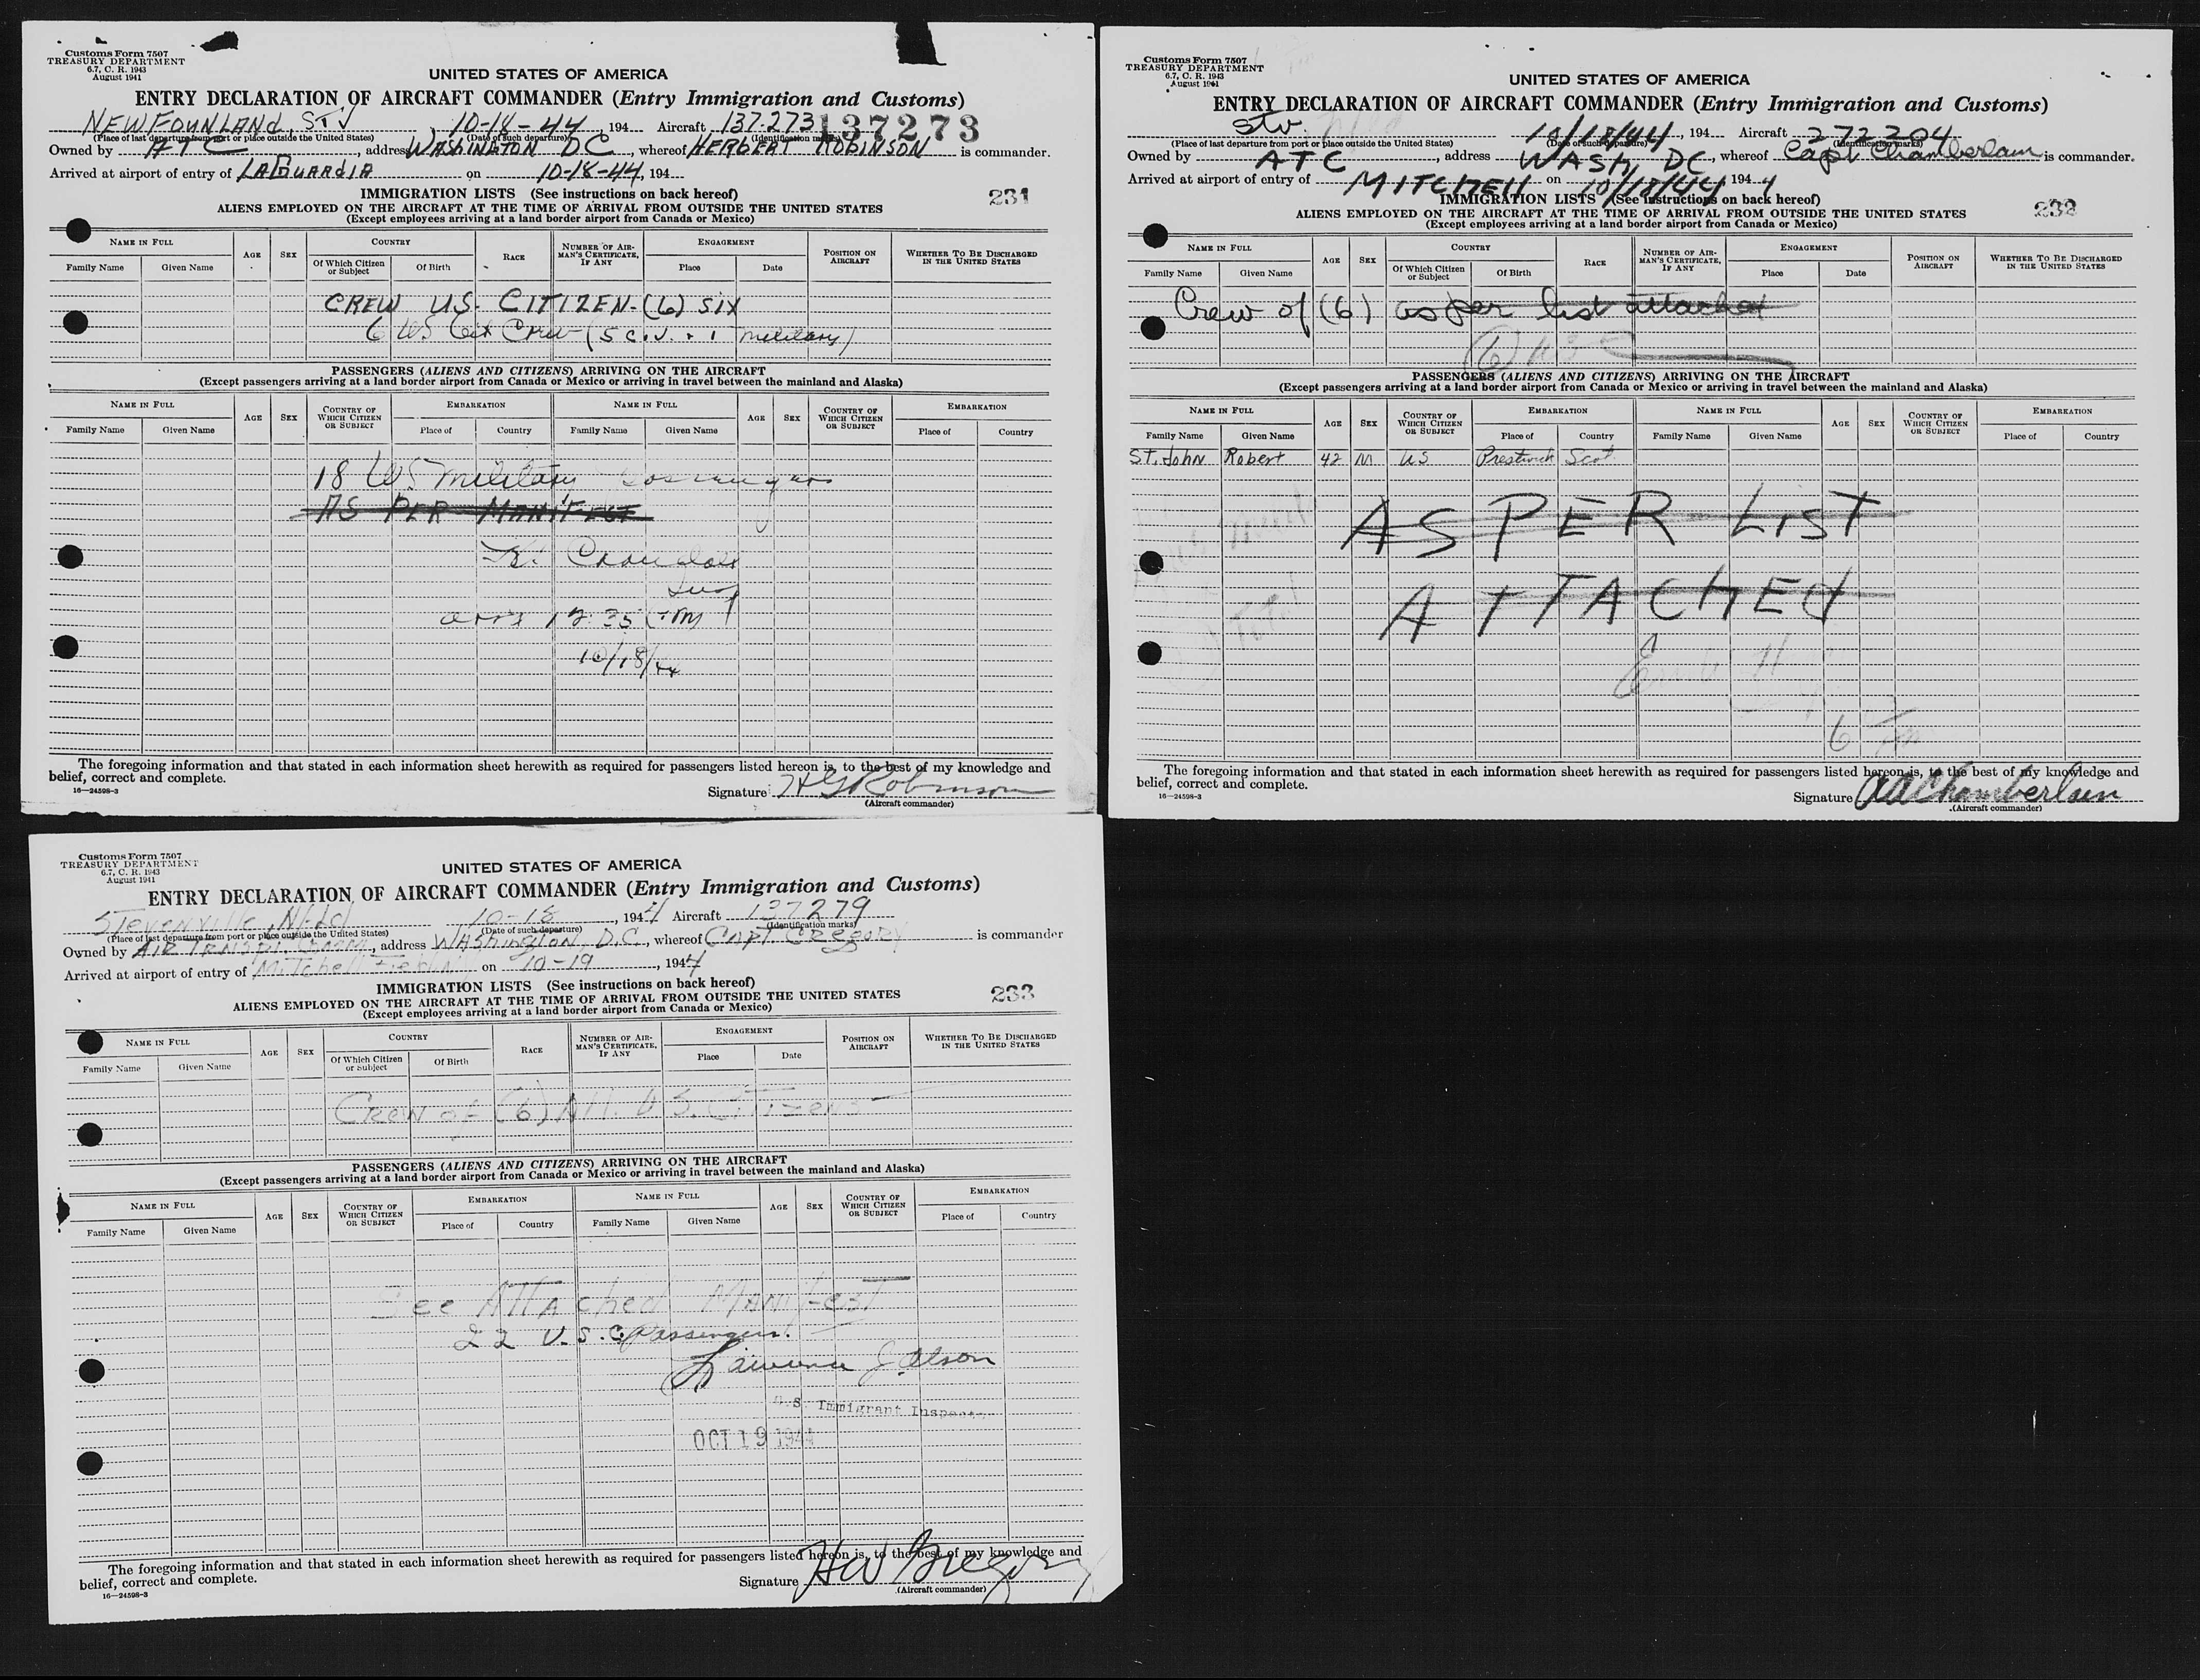 Customs Form 7507
TREASURY DEPARTMENT
6.7, C. R. 1943
August 1941
UNITED STATES OF AMERICA
ENTRY DECLARATION OF AIRCRAFT COMMANDER (Entry Immigration and Customs)
NEWFOUNLAND, STV 10-18-44, 194 Aircraft 137-273 137273
(Place of last departure from port or place outside the United States) (Date of such departure) (Identification marks)
Owned by ATC, address WASHINGTON DC, whereof HERBERT ROBINSON is commander.
Arrived at airport of entry of LAGUARDIA on 10-18-44, 194
IMMIGRATION LISTS (See instructions on back hereof)
231
ALIENS EMPLOYED ON THE AIRCRAFT AT THE TIME OF ARRIVAL FROM OUTSIDE THE UNITED STATES
(Except employees arriving at a land border airport from Canada or Mexico)
NAME IN FULL AGE SEX COUNTRY RACE NUMBER OF AIRMAN'S CERTIFICATE, IF ANY ENGAGEMENT POSITION ON AIRCRAFT WHETHER TO BE DISCHARGED IN THE UNITED STATES
Family Name Given Name Of Which Citizen or Subject Of Birth Place Date
CREW US. CITIZEN-(6) SIX
6 US Cit Crew (5 civ. + 1 military)
PASSENGERS (ALIENS AND CITIZENS) ARRIVING ON THE AIRCRAFT
(Except passengers arriving at a land border airport from Canada or Mexico or arriving in travel between the mainland and Alaska)
NAME IN FULL AGE SEX COUNTRY OF WHICH CITIZEN OR SUBJECT EMBARKATION NAME IN FULL AGE SEX COUNTRY OF WHICH CITIZEN OR SUBJECT EMBARKATION
Family Name Given Name Place of Country Family Name Given Name Place of Country
18 US military passengers
AS PER MANIFEST
arr's 12:35
10/18/44
The foregoing information and that stated in each information sheet herewith as required for passengers listed hereon is, to the best of my knowledge and
belief, correct and complete.
16—24598-3
Signature: H G Robinson
(Aircraft commander)
Customs Form 7507
TREASURY DEPARTMENT
6.7, C. R. 1943
August 1941
UNITED STATES OF AMERICA
ENTRY DECLARATION OF AIRCRAFT COMMANDER (Entry Immigration and Customs)
Stv. Nfld 10/18/44, 194 Aircraft 272204
(Place of last departure from port or place outside the United States) (Date of such departure) (Identification marks)
Owned by ATC, address WASH, DC, whereof Capt Chamberlain is commander.
Arrived at airport of entry of MITCHELL on 10/18/44 1944
IMMIGRATION LISTS (See instructions on back hereof)
232
ALIENS EMPLOYED ON THE AIRCRAFT AT THE TIME OF ARRIVAL FROM OUTSIDE THE UNITED STATES
(Except employees arriving at a land border airport from Canada or Mexico)
NAME IN FULL AGE SEX COUNTRY RACE NUMBER OF AIRMAN'S CERTIFICATE, IF ANY ENGAGEMENT POSITION ON AIRCRAFT WHETHER TO BE DISCHARGED IN THE UNITED STATES
Family Name Given Name Of Which Citizen or Subject Of Birth Place Date
Crew of (6) as per list attached
(6) US
PASSENGERS (ALIENS AND CITIZENS) ARRIVING ON THE AIRCRAFT
(Except passengers arriving at a land border airport from Canada or Mexico or arriving in travel between the mainland and Alaska)
NAME IN FULL AGE SEX COUNTRY OF WHICH CITIZEN OR SUBJECT EMBARKATION NAME IN FULL AGE SEX COUNTRY OF WHICH CITIZEN OR SUBJECT EMBARKATION
Family Name Given Name Place of Country Family Name Given Name Place of Country
St. John Robert 42 M US Prestwick Scot.
AS PER LIST
ATTACHED
6
The foregoing information and that stated in each information sheet herewith as required for passengers listed hereon is, to the best of my knowledge and
belief, correct and complete.
16—24598-3
Signature AA Chamberlain
(Aircraft commander)
Customs Form 7507
TREASURY DEPARTMENT
6.7, C. R. 1943
August 1941
UNITED STATES OF AMERICA
ENTRY DECLARATION OF AIRCRAFT COMMANDER (Entry Immigration and Customs)
Stevenville, Nfld 10-18, 1944 Aircraft 137279
(Place of last departure from port or place outside the United States) (Date of such departure) (Identification marks)
Owned by AIR TRNSPT. Comm, address WAShington, D.C., whereof CAPT. GREGORY is commander
Arrived at airport of entry of Mitchell Field on 10-19, 1944
IMMIGRATION LISTS (See instructions on back hereof)
233
ALIENS EMPLOYED ON THE AIRCRAFT AT THE TIME OF ARRIVAL FROM OUTSIDE THE UNITED STATES
(Except employees arriving at a land border airport from Canada or Mexico)
NAME IN FULL AGE SEX COUNTRY RACE NUMBER OF AIRMAN'S CERTIFICATE, IF ANY ENGAGEMENT POSITION ON AIRCRAFT WHETHER TO BE DISCHARGED IN THE UNITED STATES
Family Name Given Name Of Which Citizen or Subject Of Birth Place Date
Crew of (6) All U.S. Citizens
PASSENGERS (ALIENS AND CITIZENS) ARRIVING ON THE AIRCRAFT
(Except passengers arriving at a land border airport from Canada or Mexico or arriving in travel between the mainland and Alaska)
NAME IN FULL AGE SEX COUNTRY OF WHICH CITIZEN OR SUBJECT EMBARKATION NAME IN FULL AGE SEX COUNTRY OF WHICH CITIZEN OR SUBJECT EMBARKATION
Family Name Given Name Place of Country Family Name Given Name Place of Country
See Attached Manifest
22 U.S.C. Passengers.
Lawrence J Olson
U.S. Immigrant Inspector
OCT 19 1944
The foregoing information and that stated in each information sheet herewith as required for passengers listed hereon is, to the best of my knowledge and
belief, correct and complete.
16—24598-3
Signature HW Gregory
(Aircraft commander)